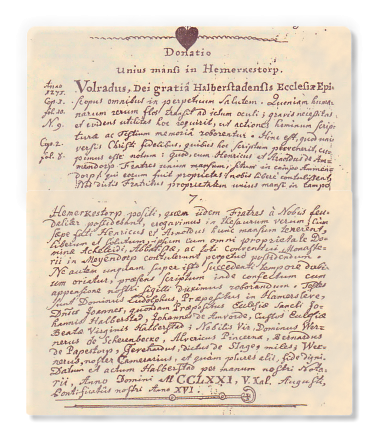 Donatio
Unius mansi in Hemerkestorp.
Anno 1271.
Cap. 3.
fol. 20.
N. 9.
Cap. 2.
fol. 8.
Volradus, Dei gratiâ Halberstadensis Ecclesiæ Epi-
scopus omnibus in perpetuum Salutem. Quoniam huma-
narum rerum flos transit ad ictum oculi; gravis necessitas
et evidens utilitas hoc requirit, ut actiones hominum scrip-
turæ ac Testium memoria roborentur. Hinc est, quod uni-
versis Christi fidelibus, quibus hoc scriptum pervenerit, cu-
pimus esse notum: quod, cum Henricus et Arnoldus de
mendorp Fratres unum mansum, situm in campo
dorp, qui eorum fuit proprietas, nobis libere
Nos dictis Fratribus proprietatem unius mansi in campo
7.
Hemerkestorp positi, quem iidem Fratres à Nobis feu-
daliter possidebant, erogavimus in
sæpe fati Henricus et Arnoldus hunc mansum tenerent,
liberum et solutum ipsum cum omni proprietate Do-
minæ Abbatissæ, ac toti Conventui Monasté-
rii in Meyendorp contulerunt perpetuo possidendum.
Ne autem super isto succedenti tempore dubi-
um oriatur, præsens scriptum inde confectum cum
appensione nostri sigilli duximus roborandum. Testes
sunt Dominus Ludolphus, Præpositus in Hamersleve,
Dnus Joannes, quondam Præpositus Ecclesiæ Sancti Jo-
hannis Halberstad, Johannes de Amvorde, Custos Ecclesiæ
Beatæ Virginis Halberstad; Nobilis Vir, Dominus Wer-
nerus de Scherenbecke, Alvericus Pincerna, Bernardus
de Papestorp, Gevehardus, dictus de Stage, miles, Wer-
nerus, noster Camerarius, et quàm plures alii, fide digni.
Datum et actum Halberstad per manum nostri Nota-
rii, Anno Domini M CCLXXI, V. Kal. Augusti,
Pontificatûs nostri Anno XVI.